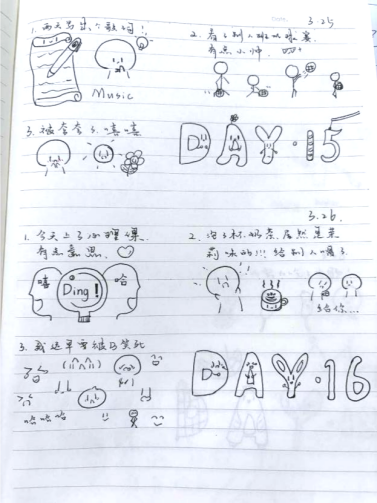 3.25
1. 两天写出个歌词!
Music
2. 看了别人班的球赛
有点小帅
3. 被夸夸了,嘻嘻
DAY·15
3.26
1. 今天上了心理课
有意思
嘻
Ding!
哈
2. 泡了杯奶茶居然是茉
莉味的!!! 给别人喝了
给你...
3. 我迟早要被笑死
哈哈哈
DAY·16